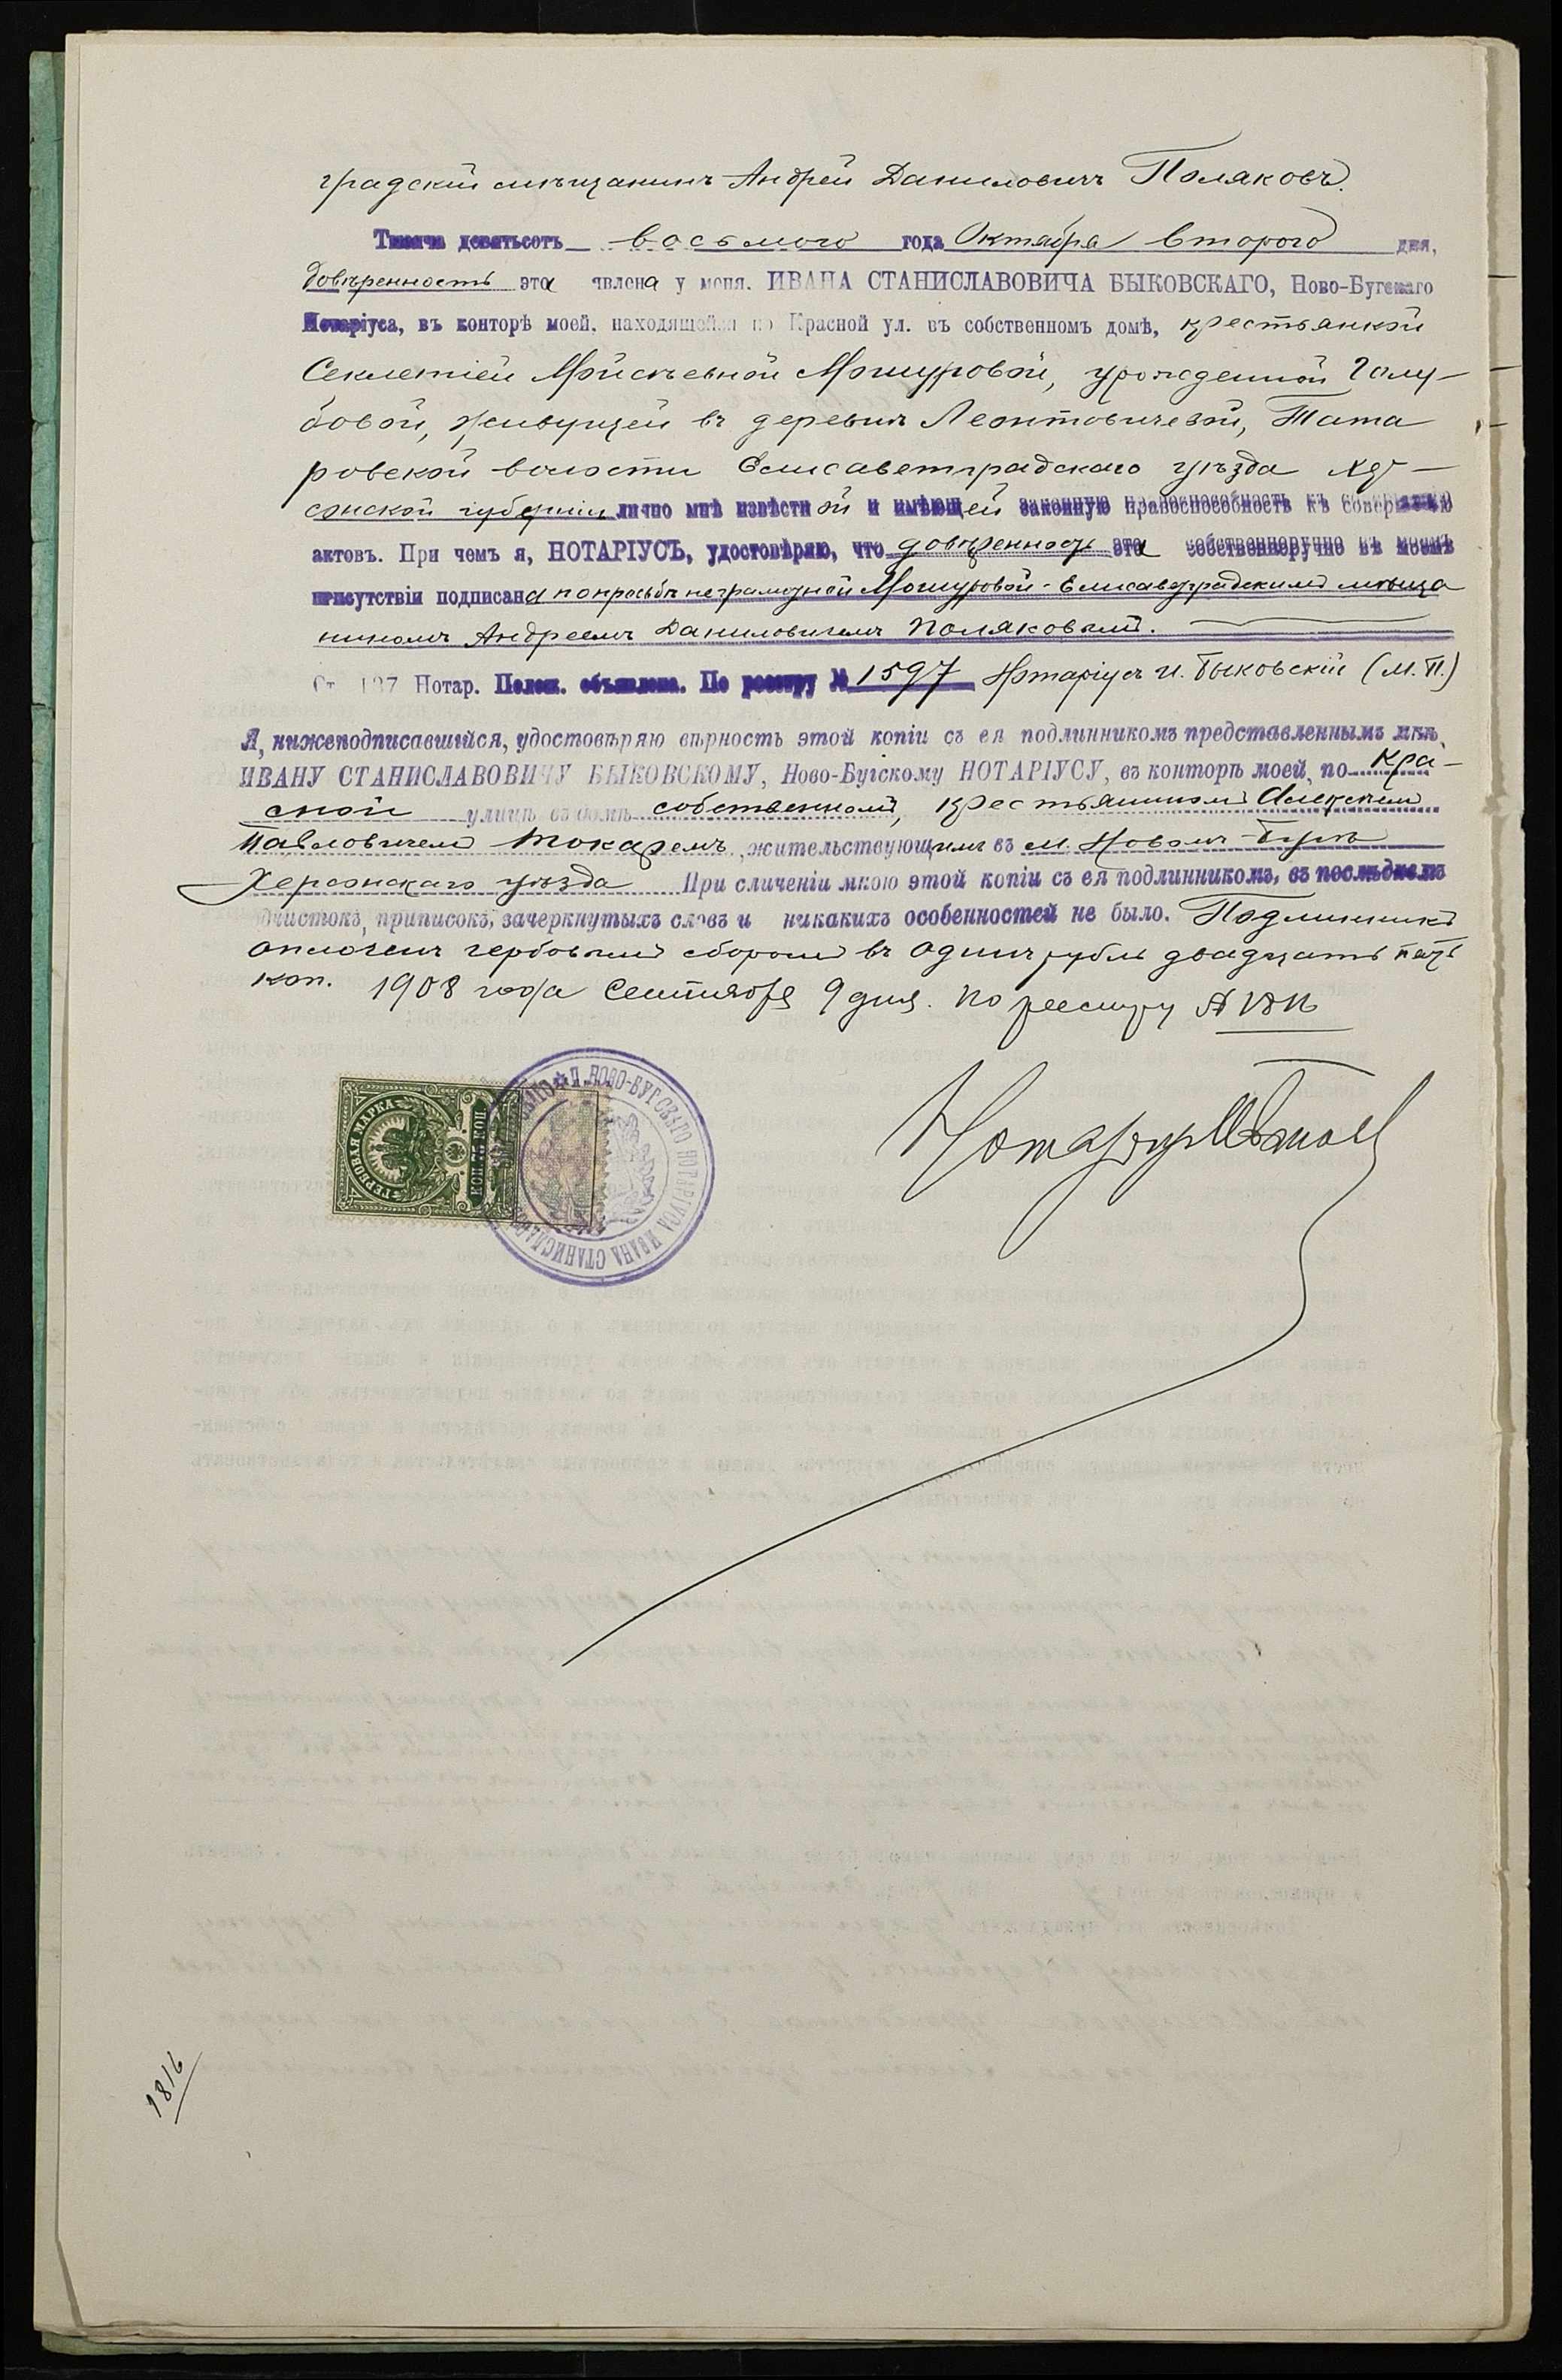 градскій мѣщанинъ Андрей Даниловичъ Поляковъ.
Тысяча девятьсотъ восьмого года Октября второго дня,
довѣренность эта явлена у меня. ИВАНА СТАНИСЛАВОВИЧА БЫКОВСКАГО, Ново-Бугскаго
Нотаріуса, въ конторѣ моей, находящейся по Красной ул. въ собственномъ домѣ, крестьянкой
Секлетіей Мойсѣевной Мошуровой, урожденной Голу-
бовой, живущей въ деревнѣ Леонтовичевой, Тата
ровской волости Елисаветградскаго уѣзда Хер-
сонской губерніи лично мнѣ извѣстной и имѣющей законную правоспособность къ совершенію
актовъ. При чемъ я, НОТАРІУСЪ, удостовѣряю, что довѣренность эта собственноручно въ моемъ
присутствіи подписана по просьбѣ неграмотной Мошуровой Елисаветградскимъ мѣща
ниномъ Андреемъ Даниловичемъ Поляковымъ.
Ст 127 Нотар. Полож. объявлена. По реестру № 1597 Нотаріусъ И. Быковскій (М.П.)
Я, нижеподписавшійся, удостовѣряю вѣрность этой копіи съ ея подлинникомъ представленнымъ мнѣ,
ИВАНУ СТАНИСЛАВОВИЧУ БЫКОВСКОМУ, Ново-Бугскому НОТАРІУСУ, въ конторѣ моей, по Кра-
сной улицѣ въ домѣ собственномъ, крестьяниномъ Алексѣемъ
Павловичемъ Токаремъ, жительствующимъ въ м. Новомъ-Бугѣ
Херсонскаго уѣзда При сличеніи мною этой копіи съ ея подлинникомъ, въ послѣднемъ
подчистокъ, приписокъ, зачеркнутыхъ словъ и никакихъ особенностей не было. Подлинникъ
оплоченъ гербовымъ сборомъ въ одинъ рубль двадцать пять
коп. 1908 года 9 дня. По реестру №
ГЕРБОВАЯ МАРКА
75 КОП
П. НОВО-БУГСКАГО НОТАРІУСА ИВАНА СТАНИСЛАВОВ
Нотаріусъ
1816